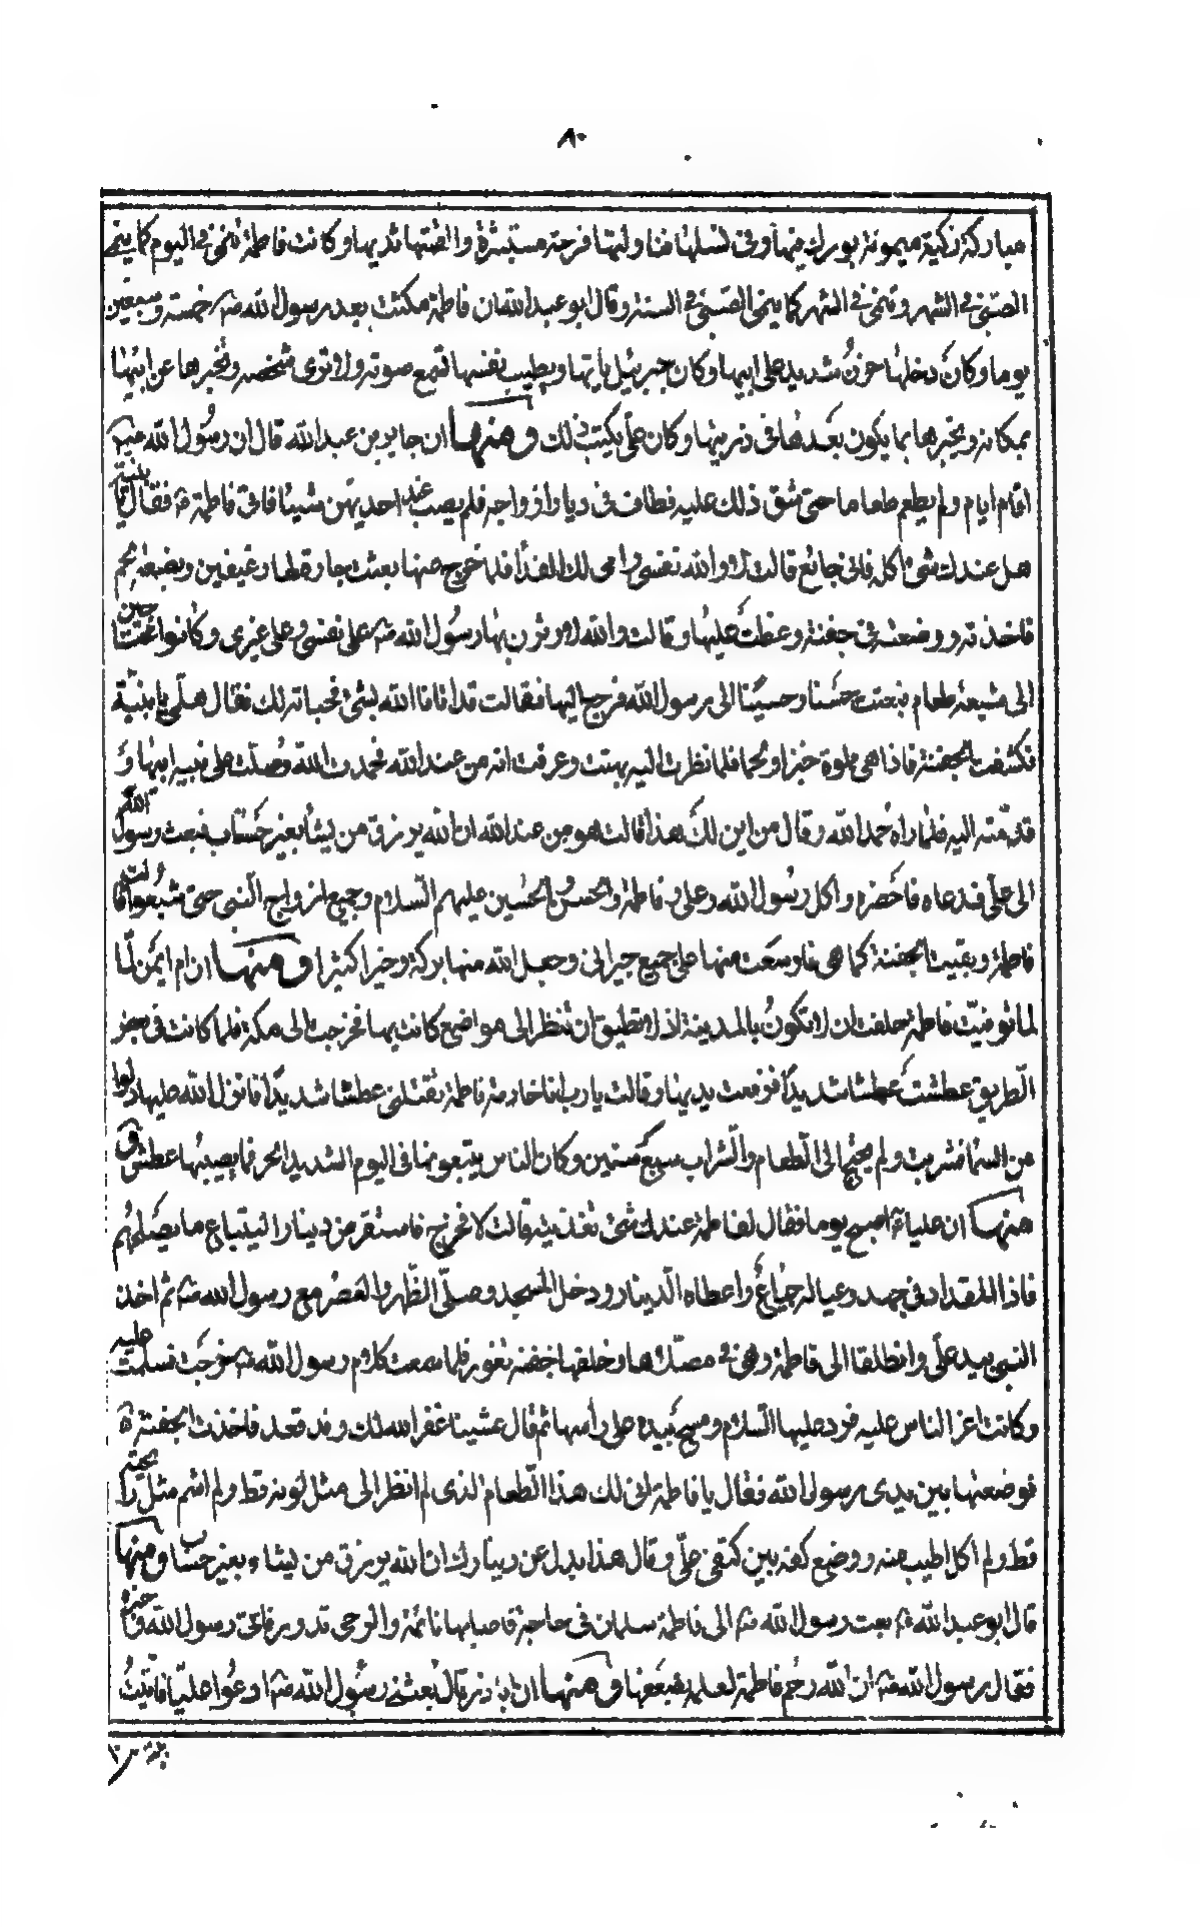 ٨٠
مباركة زكية ميمونة بورك فيها وفى نسلها فناولتها فرحة مستبشرة والقمتها ثديها وكانت فاطمة تنمى فى اليوم كما ينمى
الصبى فى الشهر وتنمى فى الشهر كما ينمى الصبى فى السنة وقال ابو عبد الله ان فاطمة مكثت بعد رسول الله ص خمسة وسبعين
يوما وكان دخلها حزن شديد على ابيها وكان جبرئيل ياتيها ويطيب نفسها تسمع صوته ولا ترى شخصه ويخبرها عن ابيها
بمكانه ويخبرها بما يكون بعدها فى ذريتها وكان على يكتب ذلك ومنها ان جابر بن عبد الله قال ان رسول الله ص
اقام ايام ولم يطعم طعاما حتى شق ذلك عليه فطاف فى ديار ازواجه فلم يصب عند احديهن شيئا فاتى فاطمة ع فقال يا بنية
هل عندك شئ اكل فانى جائع قالت لا والله نفسى وامى لك الفدا فلما خرج منها بعثت جارة لها رغيفين وبضعة لحم
فاخذته ووضعته فى جفنة وغطت عليها وقالت والله لاوثرن بها رسول الله ص على نفسى وعلى غيرى وكانوا محتاجين
الى شبعة طعام فبعثت حسنا وحسينا الى رسول الله فرجع اليها فقالت قد اتانا الله بشئ فخباته لك فقال هلمى يا بنية
فكشفت الجفنة فاذا هى مملوة خبزا ولحما فلما نظرت اليه بهتت وعرفت انه من عند الله فحمدت الله وصلت على نبيه ابيها و
قدمته اليه فلما راه حمد الله وقال من اين لك هذا قالت هو من عند الله ان الله يرزق من يشأ بغير حساب فبعث رسول الله
الى على فدعاه فاحضره واكل رسول الله وعلى وفاطمة والحسن والحسين عليهم السلام وجميع ازواج النبى حتى شبعوا قالت
فاطمة وبقيت الجفنة كما هى فاوسعت منها على جميع جيرانى وجعل الله منها بركة وخيرا كثيرا ومنها ان ام ايمن لما
لما توفيت فاطمة حلفت ان لا تكون بالمدينة اذ لا تطيق ان تنظر الى مواضع كانت بها فخرجت الى مكة فلما كانت فى بعض
الطريق عطشت عطشا شديدا فرفعت يديها وقالت يا رب انا خادمة فاطمة تقتلنى عطشا شديدا فانزل الله عليها دلوا
من السمأ فشربت ولم يحتج الى الطعام والشراب سبع سنين وكان الناس يتبعونها فى اليوم الشديد الحر فما يصيبها عطش و
منها ان عليا ع اصبح يوما فقال لفاطمة عندك شئ تغذينيه قالت لا فخرج فاستقرض دينارا ليبتاع ما يصلحهم
فاذا المقداد فى جهد وعياله جياع واعطاه الدينار ودخل المسجد وصلى الظهر والعصر مع رسول الله ص ثم اخذ
النبى بيد على وانطلقا الى فاطمة وهى فى مصلاها وخلفها جفنة تفور فلما سمعت كلام رسول الله ص خرجت فسلمت عليه
وكانت اعز الناس عليه فرد عليها السلام ومسح بيده على رأسها ثم قال عشينا غفر الله لك وقد فعل فاخذت الجفنة
فوضعتها بين يدى رسول الله فقال يا فاطمة انى لك هذا الطعام الذى لم انظر الى مثل لونه قط ولم اشم مثل رائحته
قط ولم اكل اطيب منه ووضع كفه بين كتفى على وقال هذا بدل عن دينارك ان الله يرزق من يشاء بغير حساب ومنها
قال ابو عبد الله ع بعث رسول الله ص الى فاطمة سلمان فى حاجة فاصابها نائمة والرحى تدور فاتى رسول الله فاخبره
فقال رسول الله ص ان الله رحم فاطمة لعلمه بضعفها ومنها ان ابا ذر قال بعثنى رسول الله ص ادعوا عليا فاتيت